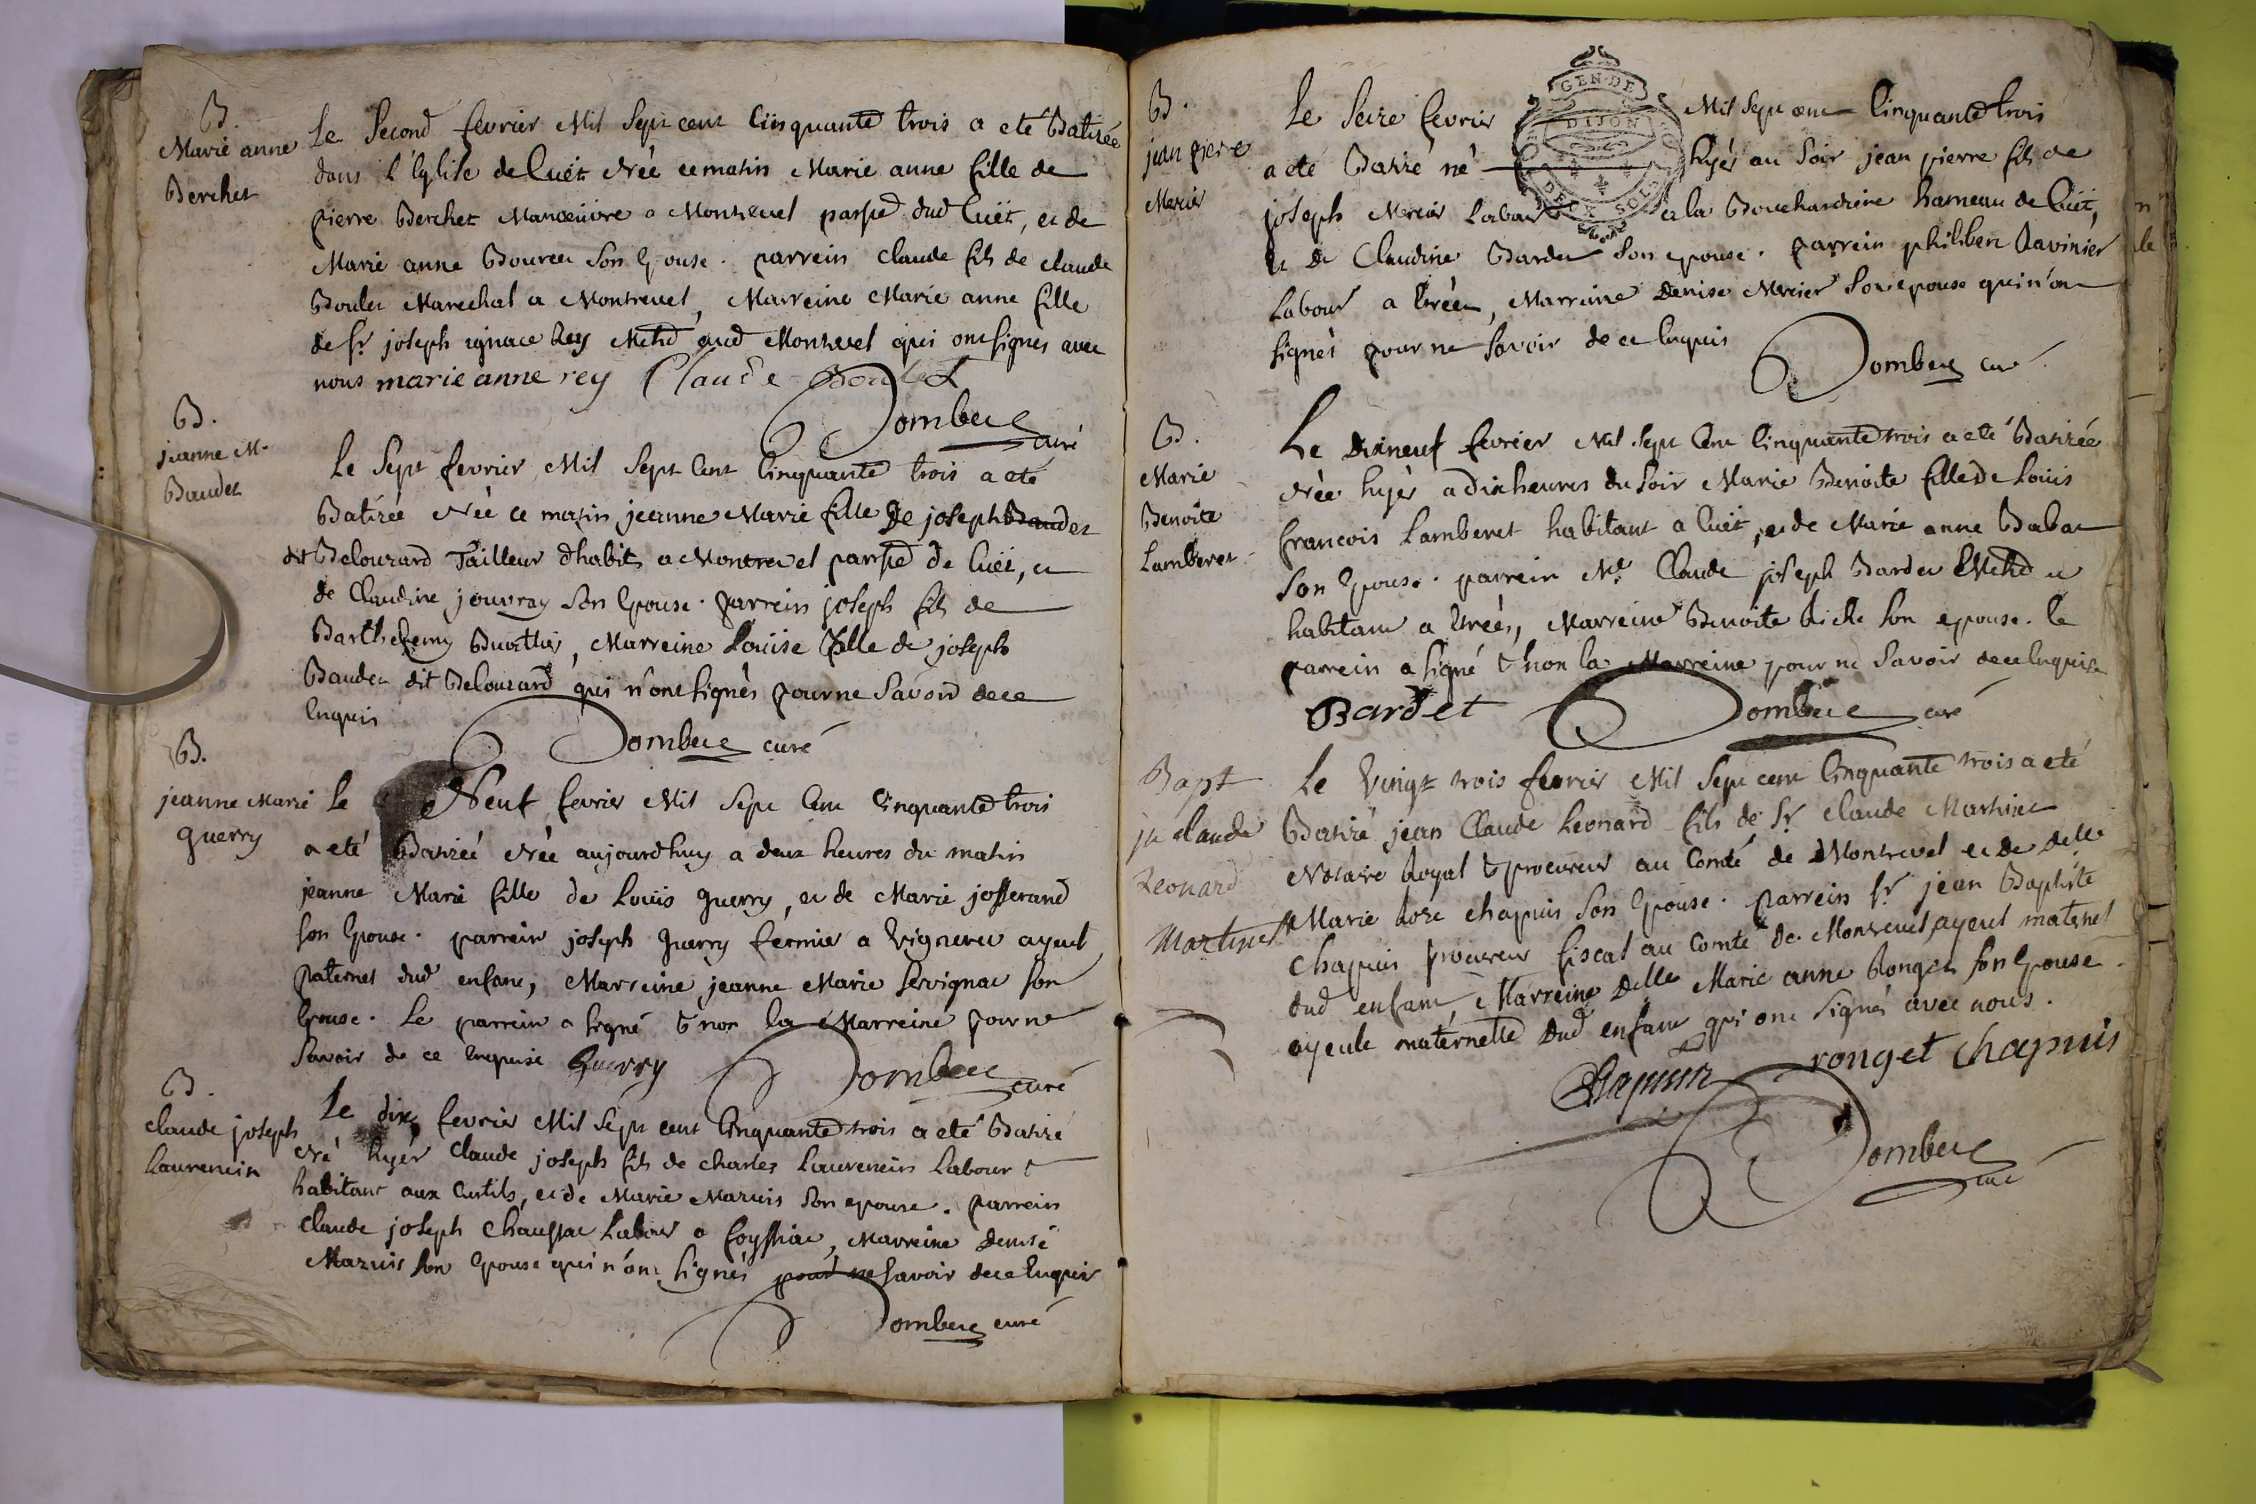 B
Marie anne
Berchet
Le Second fevrier Mil Sept cent Cinquante trois a eté Batizée
dans l'Eglise de Cuët Née ce matin Marie anne fille de
pierre Berchet Manoeuvre a Montrevel parsse dud Cuët, et de
Marie anne Bouret Son Epouse. parrein Claude fils de claude
Boulet Marechal a Montrevel, Marreine Marie anne fille
de Sr joseph ignace Rey Mchd aud Montrevel qui ont signés avec
nous marie anne rey Claude Boulet
Dombey
curé
B.
jeanne M.
Baudet
Le Sept fevrier Mil Sept Cent Cinquante trois a eté
Batizée Née ce matin jeanne Marie fille De joseph Baudet
dit Belouzard Tailleur d'habits a Montrevel parsse de Cuët, et
de Claudine jouvray Son Epouse. parrein joseph fils de
Barthelemy Buathier, Marreine Louise fille de joseph
Baudet dit Belouzard qui n'ont signés pour ne Savoir de ce
Enquis
Dombey curé
B.
jeanne Marie
guerry
Le Neuf fevrier Mil Sept Cent Cinquante trois
a eté Batizée Née aujourdhuy a deux heures du matin
jeanne Marie fille de Louis guerry, et de Marie josserand
son Epouse. parrein joseph guerry fermier a Vigneret ayeul
paternel dud enfant, Marreine jeanne Marie Servignat son
Epouse. Le parrein a signé & non la Marreine pour ne
Savoir de ce Enquise Guerry Dombey
curé
B.
claude joseph
Laurencin
Le dix fevrier Mil Sept cent Cinquante trois a eté Batizé
Né hyer Claude joseph fils de charles Laurencin Labour &
habitant aux Curtils, et de Marie Maruis Son epouse. parrein
claude joseph Chaussac Labour a foyssiac, Marreine Denise
Maruis son Epouse qui n'ont signés pour ne Savoir de ce Enquis
Dombey curé
B.
jean pierre
Mercier
GEN. DE
DIJON
DEUX SOLS
Le Seize fevrier Mil Sept cent Cinquante trois
a eté Batizé né hyer au Soir jean pierre fils de
joseph Mercier Labour a la Bouchardiere hameau de Cuët,
et de Claudine Bardet Son epouse. parrein philibert Ravinier
Labour a Etréez, Marreine Denise Mercier Son epouse qui n'ont
signés pour ne Savoir de ce Enquis
Dombey curé
B.
Marie
Benoite
Lamberet
Le Dixneuf fevrier Mil Sept Cent Cinquante trois a eté Batizée
Née hyer a dix heures du Soir Marie Benoite fille de Louis
francois Lamberet habitant a Cuët, et de Marie anne Babat
Son Epouse. parrein Mr. Claude joseph Bardet Mchd et
habitant a Etréez, Marreine Benoite Riche son epouse. le
parrein a signé & non la Marreine pour ne Savoir de ce Enquise
Bardet Dombey curé
Bapt
jn claude
Leonard
Martinet
Le Vingt trois fevrier Mil Sept cent Cinquante trois a eté
Batizé jean Claude Leonard fils de Sr Claude Martinet
Notaire Royal & procureur au Comté de Montrevel et de delle
Marie Roze chapuis Son Epouse. parrein Sr jean Baptiste
Chapuis procureur fiscal au Comté de Montrevel, ayeul maternel
dud enfant, Marreine Delle Marie anne Ronget son Epouse
ayeule maternelle dud enfant qui ont signés avec nous.
Chapuis ronget chapuis
Dombey
curé